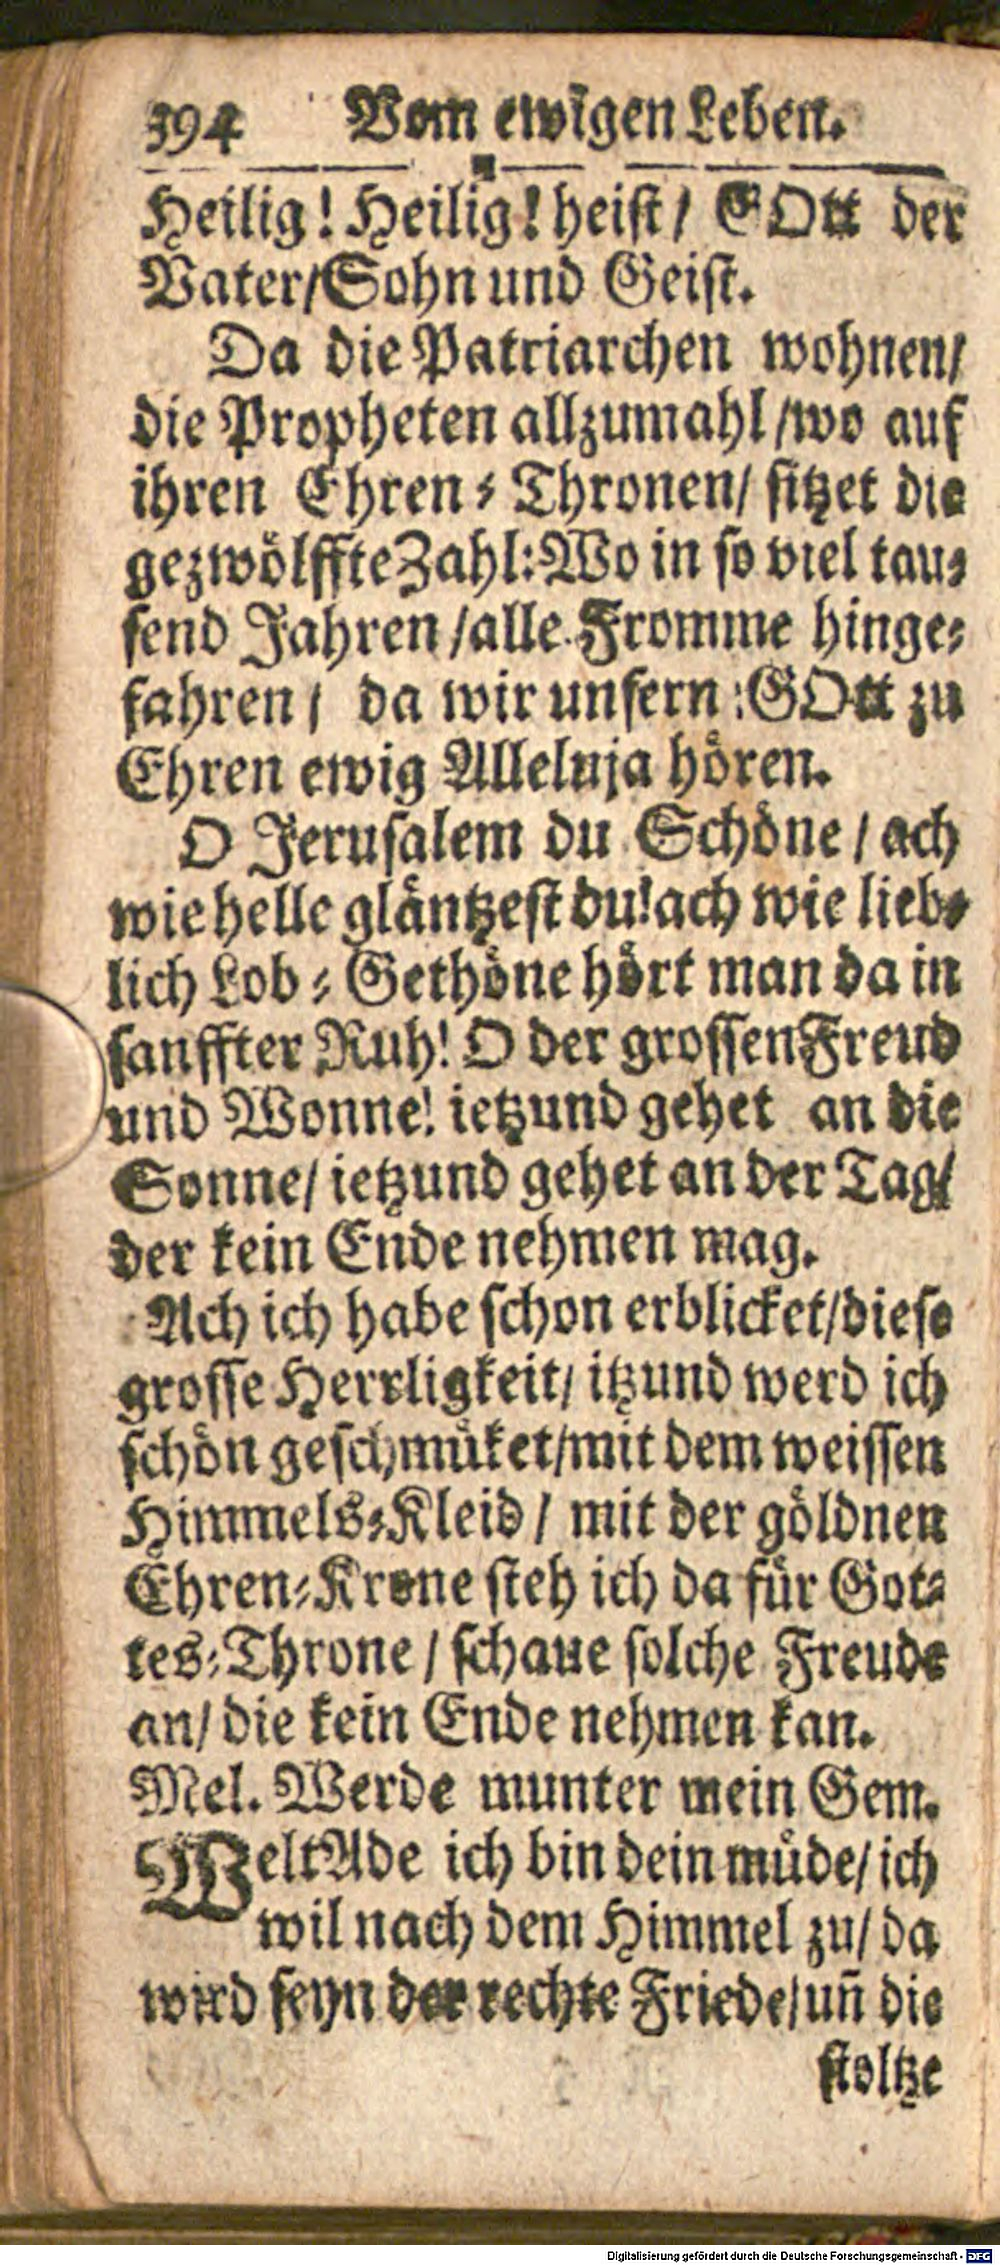 394 Vom ewigen Leben.
Heilig! Heilig! heist/ GOtt der
Vater/Sohn und Geist.
Da die Patriarchen wohnen/
die Propheten allzumahl/wo auf
ihren Ehren-Thronen/ sitzet die
gezwölffte Zahl: Wo in so viel tau-
send Jahren/alle Fromme hinge-
fahren/ da wir unsern GOtt zu
Ehren ewig Alleluja hören.
O Jerusalem du Schöne/ ach
wie helle gläntzest du! ach wie lieb-
lich Lob-Gethöne hört man da in
sanffter Ruh! O der grossen Freud
und Wonne! ietzund gehet an die
Sonne/ ietzund gehet an der Tag/
der kein Ende nehmen mag.
Ach ich habe schon erblicket/diese
grosse Herrligkeit/ itzund werd ich
schön geschmüket/mit dem weissen
Himmels-Kleid/ mit der göldnen
Ehren-Krone steh ich da für Got-
tes-Throne/ schaue solche Freude
an/ die kein Ende nehmen kan.
Mel. Werde munter mein Gem.
Welt Ade ich bin dein müde/ ich
wil nach dem Himmel zu/ da
wird seyn der rechte Friede/ uñ die
stoltze
Digitalisierung gefördert durch die Deutsche Forschungsgemeinschaft - DFG